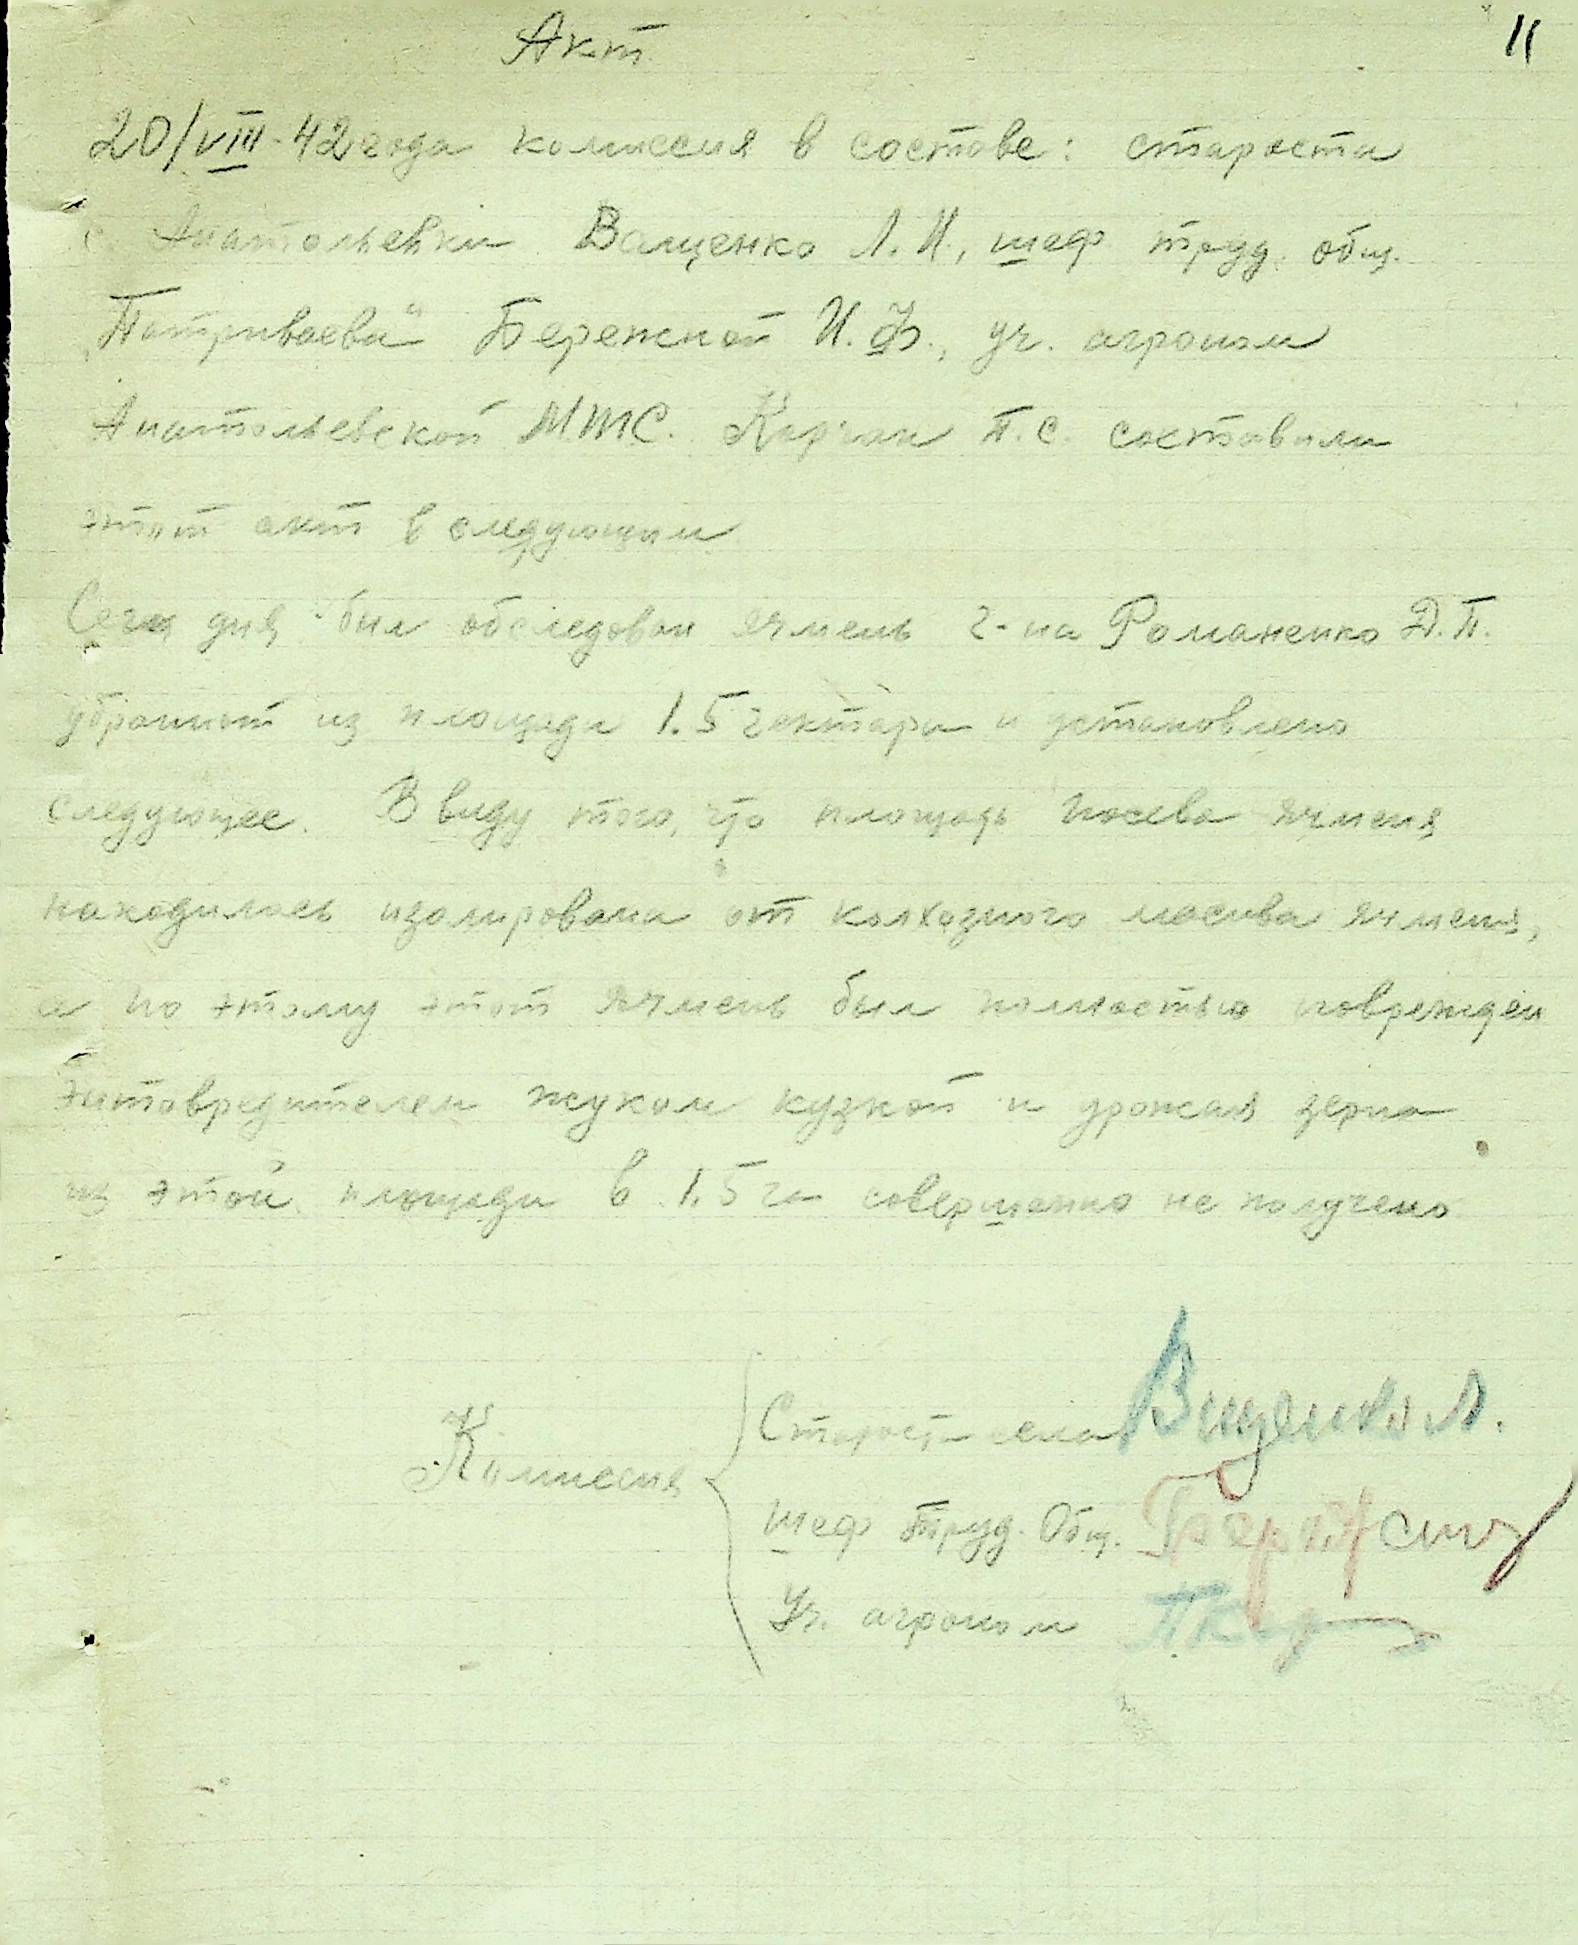 11
Акт
20/VIII-42 года комиссия в составе: староста
с. Анатольевки Ващенко Л.И., шеф труд. общ.
Бережной И.Ф., уч. агроном
Анатольевской МТС. Корчак П.С. составили
этот акт в следующим
Сего дня был обследован ячмень г-на Романенко Д.П.
убранный из площади 1.5 гектара и установлено
следующее. В виду того, что площадь посева ячменя
находилась изолирована от колхозного масива ячменя,
а по этому этот ячмень был полностью поврежден
вредителем жуком кузкой и урожая зерна
из этой площади в 1.5 га совершенно не получено
Комиссия
Староста села Ващенко Л.
шеф Труд. Общ.
Уч. агроном